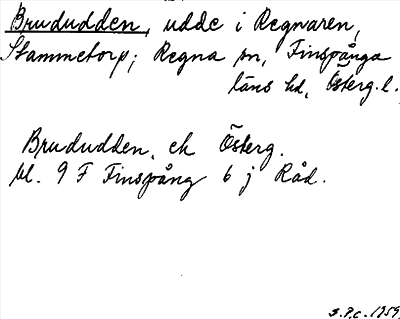 Brududden, udde i Regnaren,
Stammetorp; Regna sn, Finspånga
läns hd, Österg. l.
Brududden, ek Österg.
bl. 9 F Finspång 6 j Råd.
S.P.C. 1959